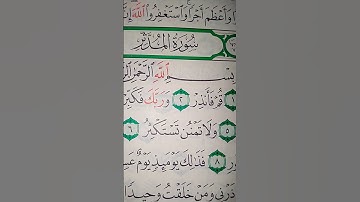 وَأَعْظَمَ أَجْرًا وَٱسْتَغْفِرُوا۟ ٱللَّهَ
سُورَةُ ٱلْمُدَّثِّرِ
بِسْمِ ٱللَّهِ ٱلرَّحْمَٰنِ
١ قُمْ فَأَنذِرْ ٢ وَرَبَّكَ فَكَبِّرْ
٥ وَلَا تَمْنُن تَسْتَكْثِرُ ٦
٨ فَذَٰلِكَ يَوْمَئِذٍ يَوْمٌ
ذَرْنِى وَمَنْ خَلَقْتُ وَحِيدًا